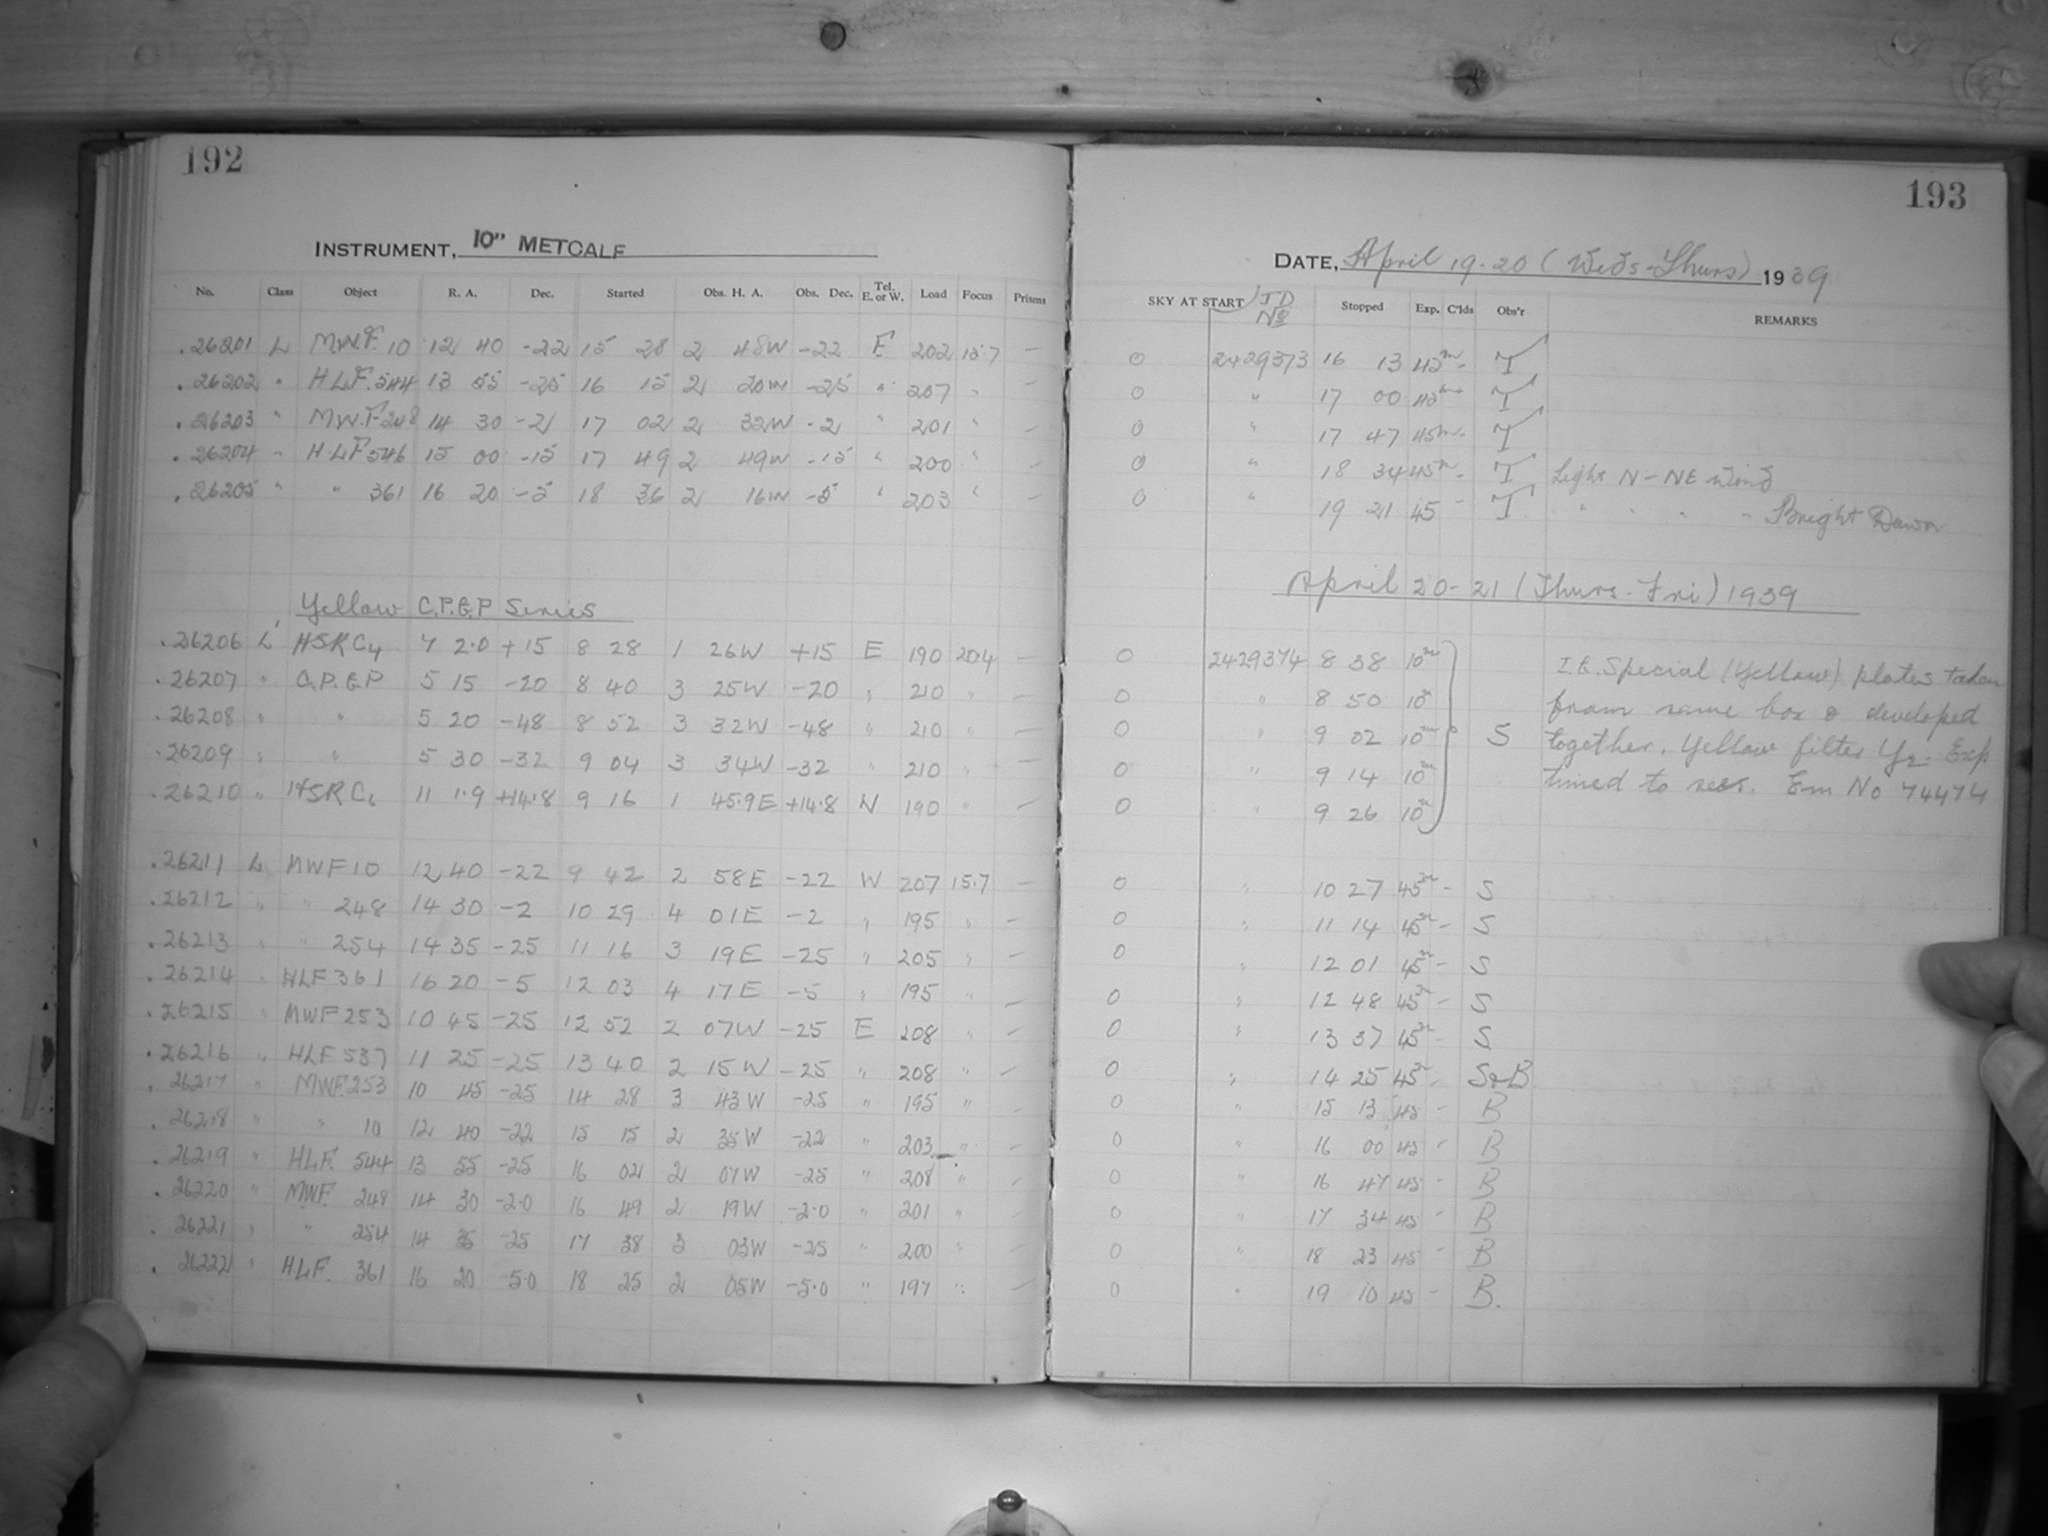 192
INSTRUMENT, 10" METCALF
No. Class Object R. A. Dec. Started Obs. H. A. Obs. Dec. Tel. E. or W. Load Focus Prisms
.26201 L MWF. 10 12 40 -22 15 28 2 48W -22 E 202 15.7 —
.26202 " HLF. 544 13 55 -25 16 15 2 20W -25 " 207 "
.26203 " MWF 248 14 30 -2 17 02 2 32W -2 " 201 " —
.26204 " HLF 546 15 00 -15 17 49 2 49W -15 " 200 " —
.26205 " " 361 16 20 -5 18 36 2 16W -5 " 203 " —
Yellow C.P.E.P Series
.26206 L' HSRC4 7 2.0 +15 8 28 1 26W +15 E 190 204 —
.26207 " C.P.E.P 5 15 -20 8 40 3 25W -20 " 210 " —
.26208 " " 5 20 -48 8 52 3 32W -48 " 210 " —
.26209 " " 5 30 -32 9 04 3 34W -32 " 210 " —
.26210 " HSRC6 11 1.9 +14.8 9 16 1 45.9E +14.8 W 190 " —
.26211 L MWF10 12 40 -22 9 42 2 58E -22 W 207 15.7 —
.26212 " " 248 14 30 -2 10 29 4 01E -2 " 195 " —
.26213 " " 254 14 35 -25 11 16 3 19E -25 " 205 " —
.26214 " HLF361 16 20 -5 12 03 4 17E -5 " 195 " —
.26215 " MWF253 10 45 -25 12 52 2 07W -25 E 208 " —
.26216 " HLF537 11 25 -25 13 40 2 15W -25 " 208 " —
.26217 " MWF.253 10 45 -25 14 28 3 43W -25 " 195 " —
.26218 " " 10 12 40 -22 15 15 2 35W -22 " 203 " —
.26219 " HLF. 544 13 55 -25 16 02 2 07W -25 " 208 " —
.26220 " MWF. 248 14 30 -2.0 16 49 2 19W -2.0 " 201 " —
.26221 " " 254 14 35 -25 17 38 3 03W -25 " 200 " —
.26222 " HLF. 361 16 20 -5.0 18 25 2 05W -5.0 " 197 " —
193
DATE, April 19-20 (Weds-Thurs) 1939
SKY AT START JD No Stopped Exp. C'lds Obs'r REMARKS
0 2429373 16 13 45m - T
0 " 17 00 45m T
0 " 17 47 45m - T
0 " 18 34 45m - T Light N-NE wind
0 " 19 21 45 - T " " " " Bright Dawn
April 20-21 (Thurs-Fri) 1939
0 2429374 8 38 10m I.E. Special (Yellow) plates taken
0 " 8 50 10m from same box & developed
0 " 9 02 10m 0 S together. Yellow filter Y2. Exp
0 " 9 14 10m timed to secs. Em No 74474
0 " 9 26 10m
0 " 10 27 45m - S
0 " 11 14 45m - S
0 " 12 01 45m - S
0 " 12 48 45m - S
0 " 13 37 45m - S
0 " 14 25 45m - S&B
0 " 15 13 45 - B
0 " 16 00 45 - B
0 " 16 47 45 - B
0 " 17 34 45 - B
0 " 18 23 45 - B
0 " 19 10 45 - B.